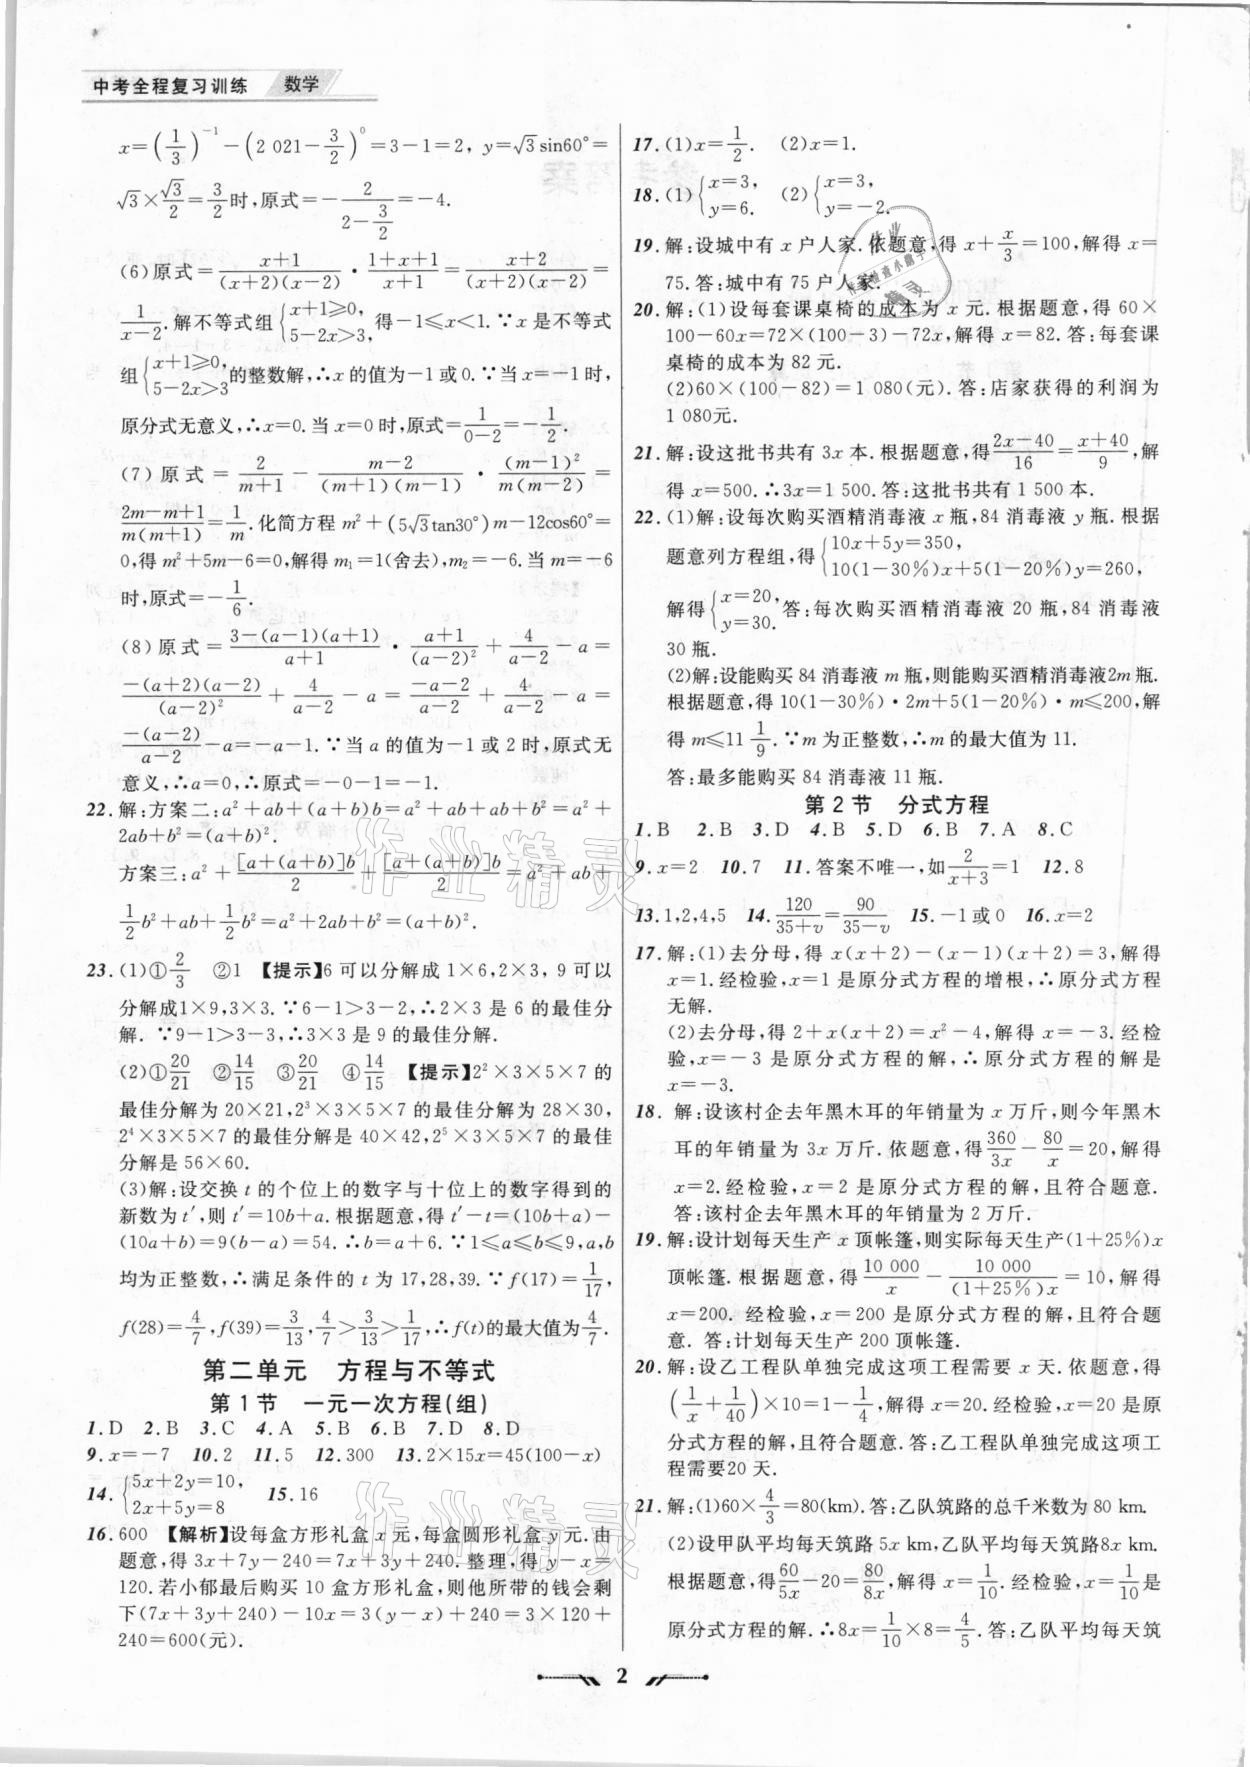 中考全程复习训练 数学
x=(1/3)⁻¹-(2 021-3/2)⁰=3-1=2, y=√3sin60°=
√3×√3/2=3/2时,原式=-2/(2-3/2)=-4.
(6)原式=(x+1)/((x+2)(x-2))·(1+x+1)/(x+1)=(x+2)/((x+2)(x-2))=
1/(x-2).解不等式组{x+1⩾0, 5-2x>3, 得-1⩽x<1.∵x是不等式
组{x+1⩾0, 5-2x>3的整数解,∴x的值为-1或0.∵当x=-1时,
原分式无意义,∴x=0.当x=0时,原式=1/(0-2)=-1/2.
(7)原式=2/(m+1)-(m-2)/((m+1)(m-1))·(m-1)²/(m(m-2))=
(2m-m+1)/(m(m+1))=1/m.化简方程m²+(5√3tan30°)m-12cos60°=
0,得m²+5m-6=0,解得m₁=1(舍去),m₂=-6.当m=-6
时,原式=-1/6.
(8)原式=(3-(a-1)(a+1))/(a+1)·(a+1)/(a-2)²+4/(a-2)-a=
(-(a+2)(a-2))/(a-2)²+4/(a-2)-a=(-a-2)/(a-2)+4/(a-2)-a=
(-(a-2))/(a-2)-a=-a-1.∵当a的值为-1或2时,原式无
意义,∴a=0,∴原式=-0-1=-1.
22.解:方案二:a²+ab+(a+b)b=a²+ab+ab+b²=a²+
2ab+b²=(a+b)².
方案三:a²+[a+(a+b)]b/2+[a+(a+b)]b/2=a²+ab+
1/2b²+ab+1/2b²=a²+2ab+b²=(a+b)².
23.(1)①2/3 ②1 【提示】6可以分解成1×6,2×3, 9可以
分解成1×9,3×3.∵6-1>3-2,∴2×3是6的最佳分
解.∵9-1>3-3,∴3×3是9的最佳分解.
(2)①20/21 ②14/15 ③20/21 ④14/15 【提示】2²×3×5×7的
最佳分解为20×21,2³×3×5×7的最佳分解为28×30,
2⁴×3×5×7的最佳分解是40×42,2⁵×3×5×7的最佳
分解是56×60.
(3)解:设交换t的个位上的数字与十位上的数字得到的
新数为t′,则t′=10b+a.根据题意,得t′-t=(10b+a)-
(10a+b)=9(b-a)=54.∴b=a+6.∵1⩽a⩽b⩽9,a,b
均为正整数,∴满足条件的t为17,28,39.∵f(17)=1/17,
f(28)=4/7,f(39)=3/13,4/7>3/13>1/17,∴f(t)的最大值为4/7.
第二单元 方程与不等式
第1节 一元一次方程(组)
1.D 2.B 3.C 4.A 5.B 6.B 7.D 8.D
9.x=-7 10.2 11.5 12.300 13.2×15x=45(100-x)
14.{5x+2y=10, 2x+5y=8 15.16
16.600 【解析】设每盒方形礼盒x元,每盒圆形礼盒y元.由
题意,得3x+7y-240=7x+3y+240.整理,得y-x=
120.若小郁最后购买10盒方形礼盒,则他所带的钱会剩
下(7x+3y+240)-10x=3(y-x)+240=3×120+
240=600(元).
17.(1)x=1/2. (2)x=1.
18.(1){x=3, y=6. (2){x=3, y=-2.
19.解:设城中有x户人家.依题意,得x+x/3=100,解得x=
75.答:城中有75户人家.
20.解:(1)设每套课桌椅的成本为x元.根据题意,得60×
100-60x=72×(100-3)-72x,解得x=82.答:每套课
桌椅的成本为82元.
(2)60×(100-82)=1 080(元).答:店家获得的利润为
1 080元.
21.解:设这批书共有3x本.根据题意,得(2x-40)/16=(x+40)/9,解
得x=500.∴3x=1 500.答:这批书共有1 500本.
22.(1)解:设每次购买酒精消毒液x瓶,84消毒液y瓶.根据
题意列方程组,得{10x+5y=350, 10(1-30%)x+5(1-20%)y=260,
解得{x=20, y=30. 答:每次购买酒精消毒液20瓶,84消毒液
30瓶.
(2)解:设能购买84消毒液m瓶,则能购买酒精消毒液2m瓶.
根据题意,得10(1-30%)·2m+5(1-20%)·m⩽200,解
得m⩽11 1/9.∵m为正整数,∴m的最大值为11.
答:最多能购买84消毒液11瓶.
第2节 分式方程
1.B 2.B 3.D 4.B 5.D 6.B 7.A 8.C
9.x=2 10.7 11.答案不唯一,如2/(x+3)=1 12.8
13.1,2,4,5 14.120/(35+v)=90/(35-v) 15.-1或0 16.x=2
17.解:(1)去分母,得x(x+2)-(x-1)(x+2)=3,解得
x=1.经检验,x=1是原分式方程的增根,∴原分式方程
无解.
(2)去分母,得2+x(x+2)=x²-4,解得x=-3.经检
验,x=-3是原分式方程的解,∴原分式方程的解是
x=-3.
18.解:设该村企去年黑木耳的年销量为x万斤,则今年黑木
耳的年销量为3x万斤.依题意,得360/3x-80/x=20,解得
x=2.经检验,x=2是原分式方程的解,且符合题意.
答:该村企去年黑木耳的年销量为2万斤.
19.解:设计划每天生产x顶帐篷,则实际每天生产(1+25%)x
顶帐篷.根据题意,得10 000/x-10 000/((1+25%)x)=10,解得
x=200.经检验,x=200是原分式方程的解,且符合题
意.答:计划每天生产200顶帐篷.
20.解:设乙工程队单独完成这项工程需要x天.依题意,得
(1/x+1/40)×10=1-1/4,解得x=20.经检验,x=20是原
分式方程的解,且符合题意.答:乙工程队单独完成这项工
程需要20天.
21.解:(1)60×4/3=80(km).答:乙队筑路的总千米数为80 km.
(2)设甲队平均每天筑路5x km,乙队平均每天筑路8x km.
根据题意,得60/5x-20=80/8x,解得x=1/10.经检验,x=1/10是
原分式方程的解.∴8x=1/10×8=4/5.答:乙队平均每天筑
2
作业精灵
作业精灵